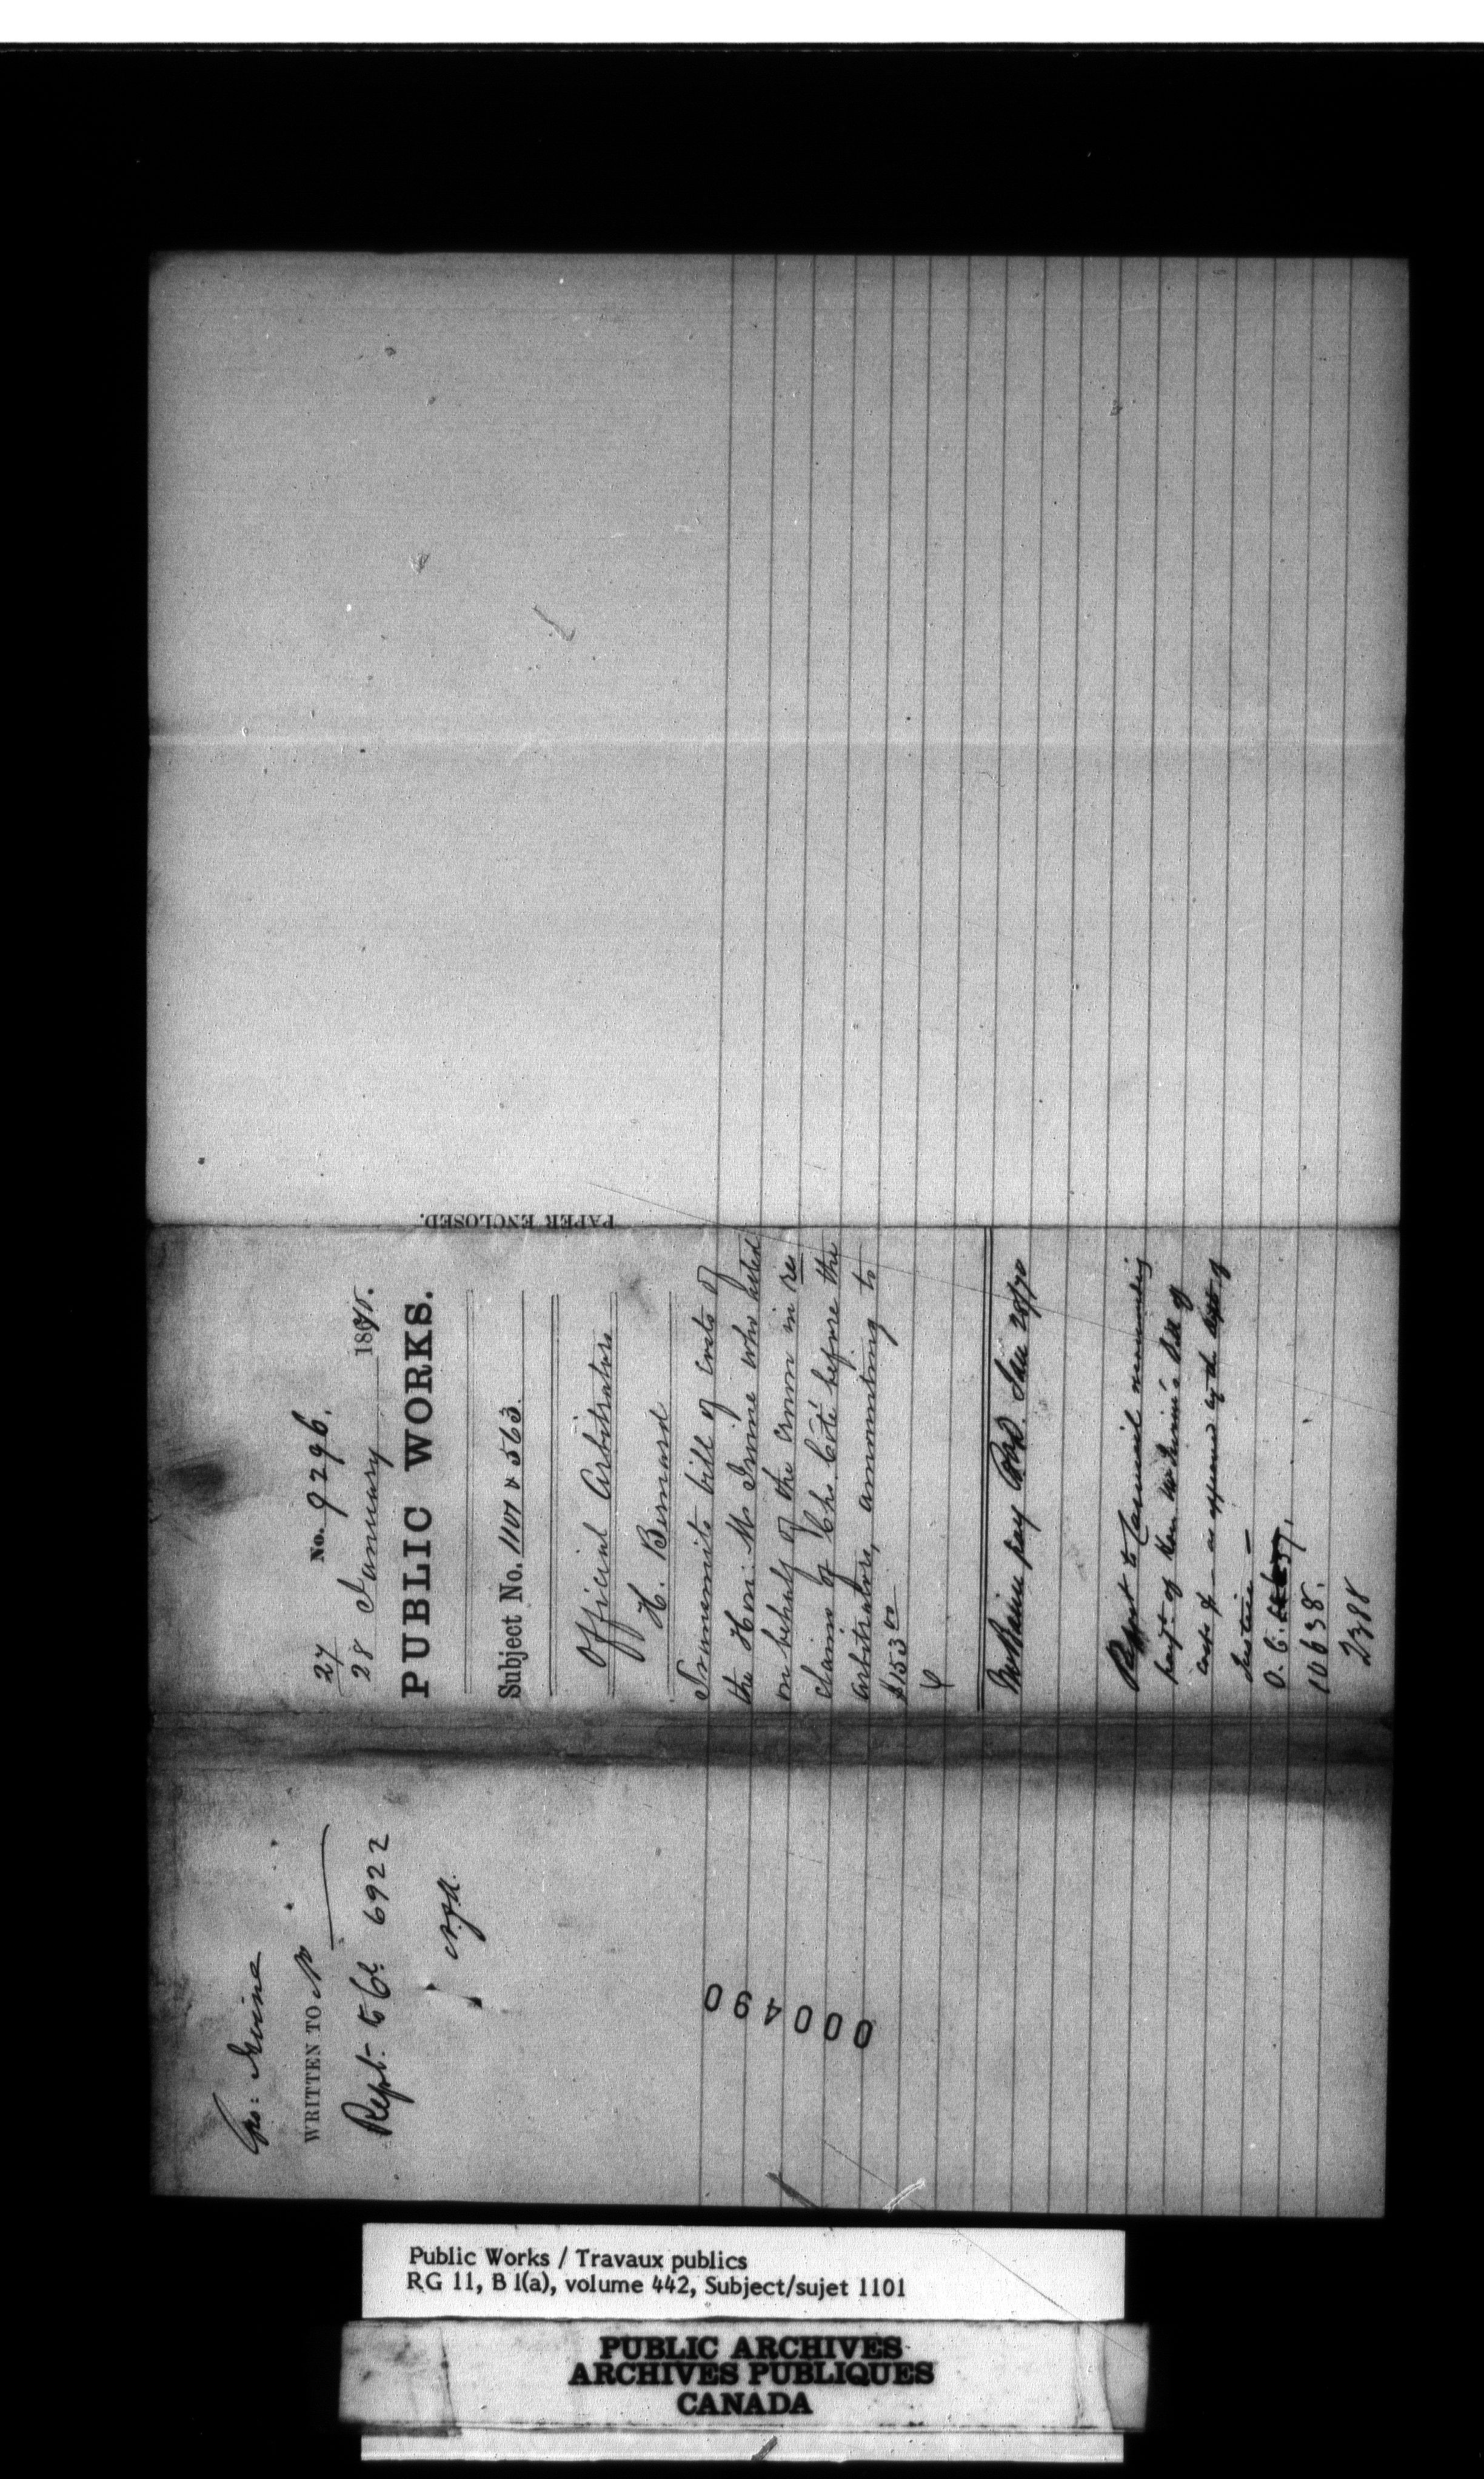 Geo: Irvine
WRITTEN TO
Rept. to Cl. 6922
000490
No. 9296.
27
28 January 1870.
PUBLIC WORKS.
Subject No. 1101 & 563.
Official Arbitrators
H. Bernard
Transmits bill of costs of
the Hon: Mr Irvine who acted
on behalf of the Crown in re
claim of Chs. Coté before the
arbitrators, amounting to
$153.00
pay Jan 28/70
Report to Council recommending
payt. of Hon. Mr Irvine's Bill of
costs as approved by the Dept. of
Justice —
O. C.
10638.
2388
PAPER ENCLOSED.
Public Works / Travaux publics
RG 11, B 1(a), volume 442, Subject/sujet 1101
PUBLIC ARCHIVES
ARCHIVES PUBLIQUES
CANADA